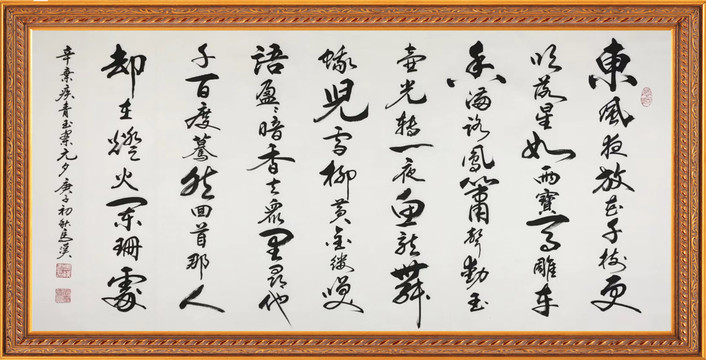 東風夜放花千樹更
吹落星如雨寶馬雕車
香滿路鳳簫聲動玉
壺光轉一夜魚龍舞
蛾兒雪柳黄金縷笑
語盈〻暗香去衆里尋他
千百度驀然回首那人
却在燈火闌珊處
辛棄疾青玉案元夕 庚子初秋